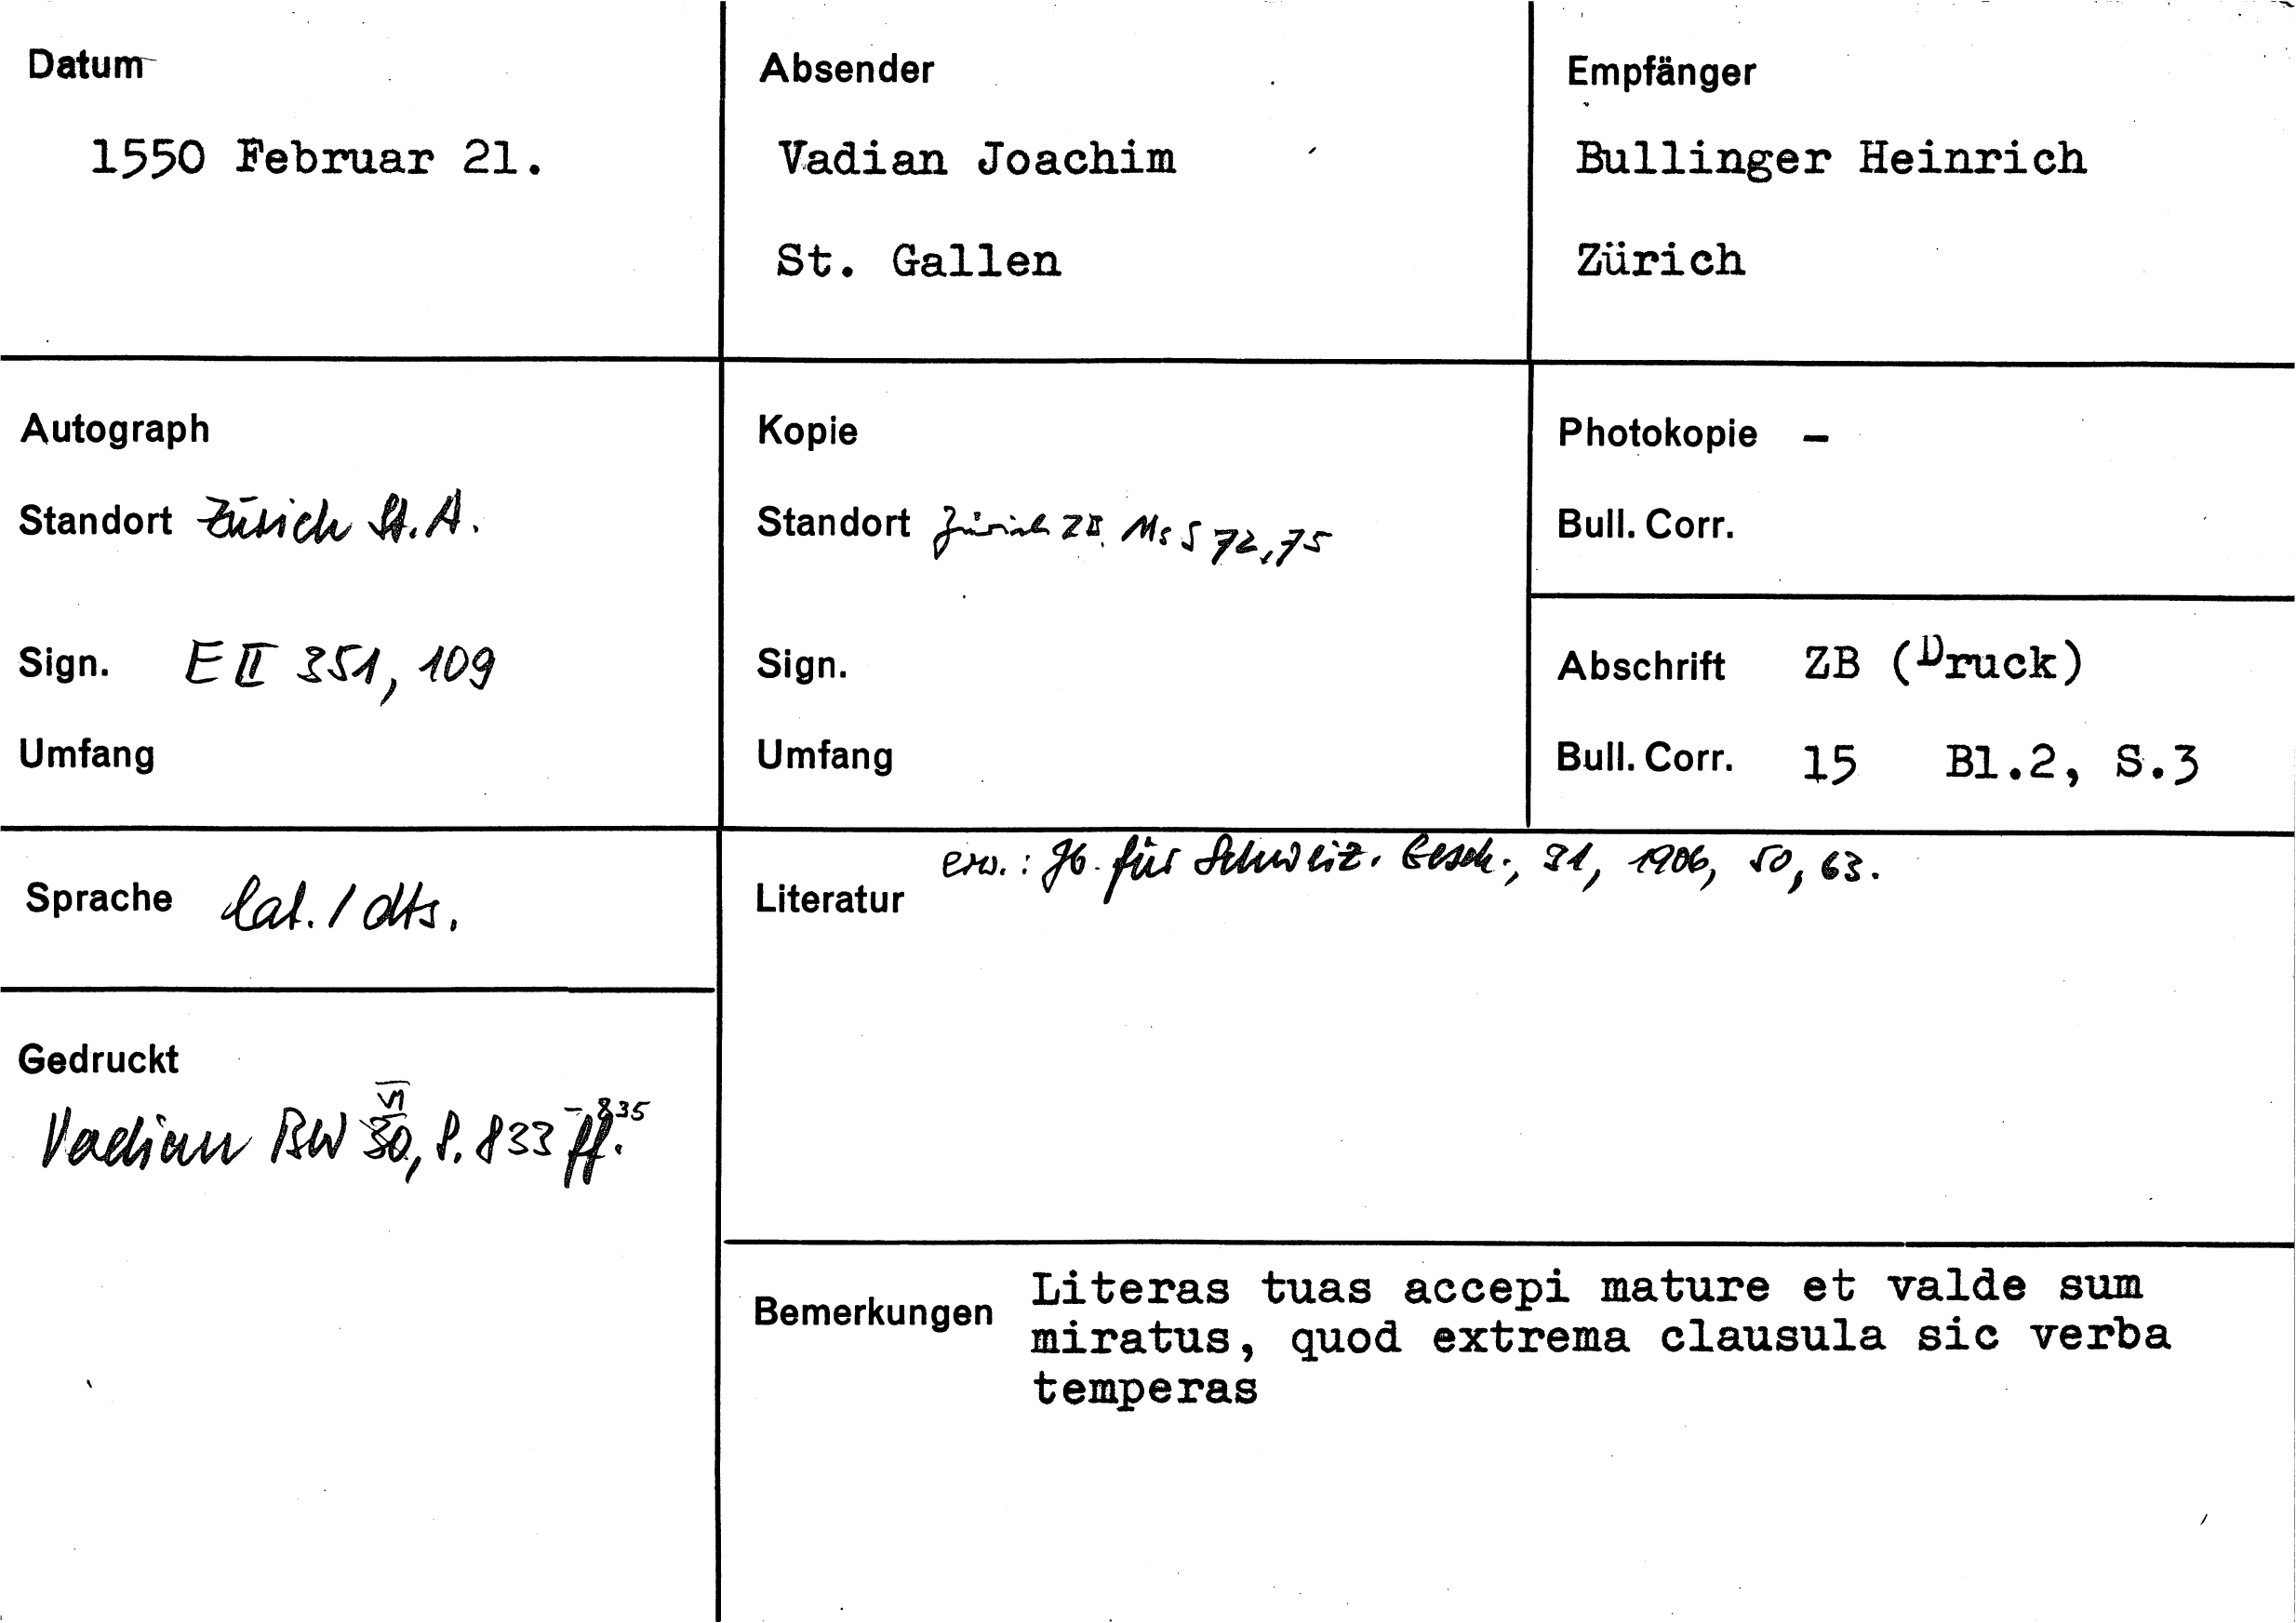 Datum
1550 Februar 21.
Absender
Vadian Joachim
St. Gallen
Empfänger
Bullinger Heinrich
Zürich
Autograph
Standort Zürich St. A.
Sign. E II 351, 109
Umfang
Kopie
Standort Zürich ZB. Ms S 72, 75
Sign.
Umfang
Photokopie –
Bull. Corr.
Abschrift ZB (Druck)
Bull. Corr. 15 Bl.2, S.3
Sprache lat. / dts.
Gedruckt
Vadian BW VI, S. 833 -835
Literatur erw.: Jb. für Schweiz. Gesch., 31, 1906, 50, 63.
Bemerkungen Literas tuas accepi mature et valde sum
miratus, quod extrema clausula sic verba
temperas